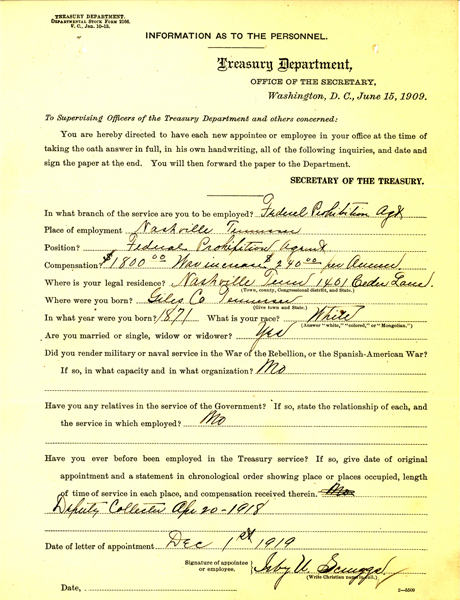 TREASURY DEPARTMENT.
DEPARTMENTAL STOCK FORM 2186.
V. C., Jan. 10-13.
INFORMATION AS TO THE PERSONNEL.
Treasury Department,
OFFICE OF THE SECRETARY,
Washington, D. C., June 15, 1909.
To Supervising Officers of the Treasury Department and others concerned:
You are hereby directed to have each new appointee or employee in your office at the time of
taking the oath answer in full, in his own handwriting, all of the following inquiries, and date and
sign the paper at the end. You will then forward the paper to the Department.
SECRETARY OF THE TREASURY.
In what branch of the service are you to be employed? Federal Prohibition Agt
Place of employment Nashville Tennessee
Position? Federal Prohibition Agent
Compensation? $1800.00 War increase $240.00 per Annum
Where is your legal residence? Nashville Tenn 1401 Ceder Lane.
(Town, county, Congressional district, and State.)
Where were you born? Giles Co Tennessee
(Give town and State.)
In what year were you born? 1871 What is your race? White
(Answer "white," "colored," or "Mongolian.")
Are you married or single, widow or widower? Yes
Did you render military or naval service in the War of the Rebellion, or the Spanish-American War?
If so, in what capacity and in what organization? No
Have you any relatives in the service of the Government? If so, state the relationship of each, and
the service in which employed? No
Have you ever before been employed in the Treasury service? If so, give date of original
appointment and a statement in chronological order showing place or places occupied, length
of time of service in each place, and compensation received therein. No
Deputy Collector Apr 20-1918
Date of letter of appointment Dec 1st 1919
Signature of appointee
or employee, U. Scruggs
(Write Christian name in full.)
Date,